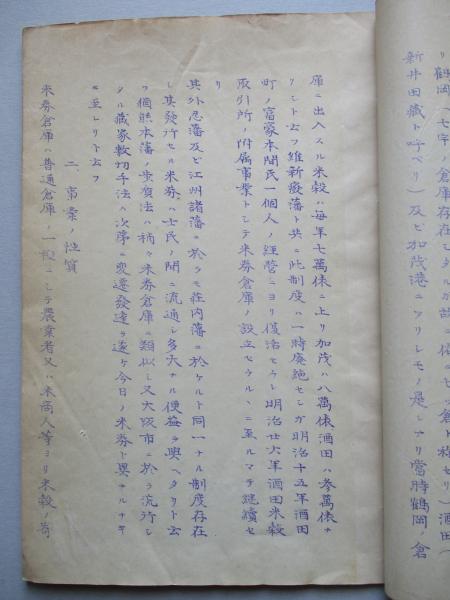 リ鶴岡(七ツノ倉庫存在シタルガ故
新井田蔵ト呼ベリ)及ビ加茂港ニツリシモノ是レナリ當時鶴岡ノ倉
庫ニ出入スル米穀ハ毎年七萬俵ニ上リ加茂ハ八萬俵酒田ハ参萬俵ナ
リシト云フ維新廃藩ト共ニ此制度ハ一時廃絶セシガ明治十五年酒田
町ノ富豪本間氏一個人ノ経営ニヨリ復活セラレ明治廿六年酒田米穀
取引所ノ附属事業トシテ米券倉庫ノ設立セラルヽニ至ルマデ継續セ
リ
其外忍藩及ビ江州諸藩ニ於テモ荘内藩ニ於ケルト同一ナル制度存在
シ其発行セル米券ハ士民ノ間ニ流通シ多大ナル便益ヲ與ヘタリト云
フ個熊本藩ノ歩貨法ハ稍々米券倉庫ニ類似シ又大阪市ニ於テ流行シ
タル蔵家軟切手法ハ次序ニ変遷發達ヲ遂ケ今日ノ米券ト異ナルナキ
ニ至レリト云フ
二、事業ノ性質
米券倉庫ハ普通倉庫ノ一種ニシテ農業者又ハ米商人等ヨリ米穀ノ寄